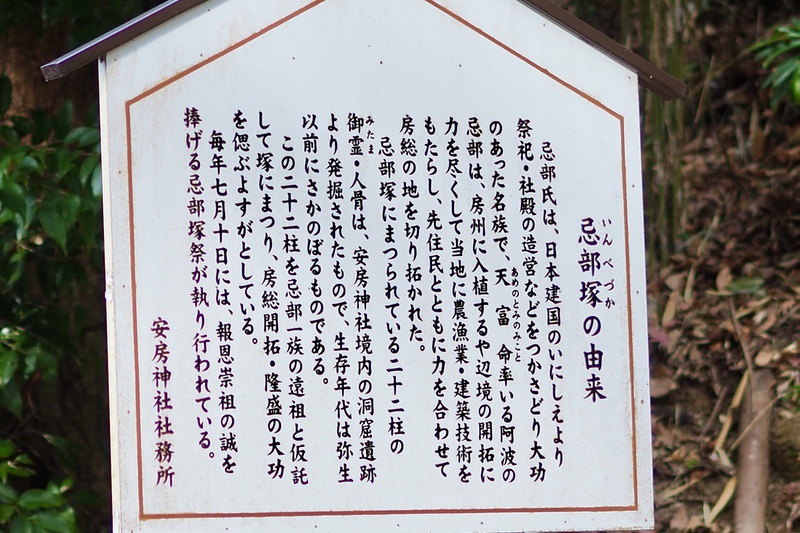 忌部塚の由来
いんべづか
忌部氏は、日本建国のいにしえより
祭祀・社殿の造営などをつかさどり大功
のあった名族で、天富命率いる阿波の
あめのとみのみこと
忌部は、房州に入植するや辺境の開拓に
力を尽くして当地に農漁業・建築技術を
もたらし、先住民とともに力を合わせて
房総の地を切り拓かれた。
忌部塚にまつられている二十二柱の
御霊・人骨は、安房神社境内の洞窟遺跡
みたま
より発掘されたもので、生存年代は弥生
以前にさかのぼるものである。
この二十二柱を忌部一族の遠祖と仮託
して塚にまつり、房総開拓・隆盛の大功
を偲ぶよすがとしている。
毎年七月十日には、報恩崇祖の誠を
捧げる忌部塚祭が執り行われている。
安房神社社務所